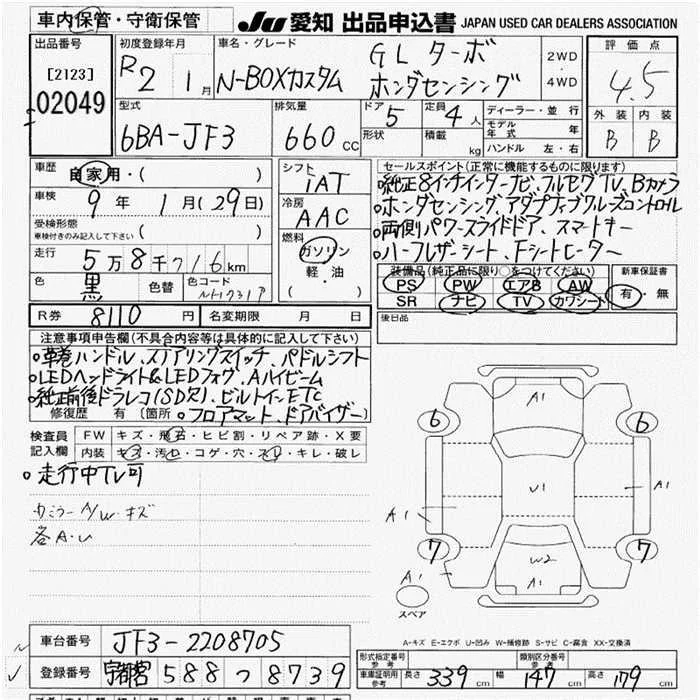 車内保管・守衛保管
JU 愛知 出品申込書 JAPAN USED CAR DEALERS ASSOCIATION
出品番号
[2123]
02049
初度登録年月
R2 1月
車名・グレード
N-BOXカスタム
GL ターボ
ホンダセンシング
2WD
・
4WD
評価点
4.5
外装 内装
B B
型式
6BA-JF3
排気量
660 CC
ドア 5
形状
定員 4 人
積載 kg
ディーラー・並行
モデル年式 年
ハンドル 左・右
車歴
自家用・( )
車検
9年 1月(29日)
受検形態
車検付きのみ記入して下さい ( )
走行
5万8千716km
色
黒
色替
色コード
シフト
IAT
冷房
AAC
燃料
ガソリン
軽・油
( )
セールスポイント(正常に機能するものに限ります)
純正8インチインターナビ、フルセグTV、Bカメラ
ホンダセンシング、アダプティブクルーズコントロール
両側パワースライドドア、スマートキー
ハーフレザーシート、Fシートヒーター
装備品(純正品に限り○をつけてください)
PS PW エアB AW
SR ナビ TV カワシート
新車保証書
有・無
後日品
R券 8110 円
名変期限 月 日
注意事項申告欄(不具合内容等は具体的に記入して下さい)
革巻ハンドル、ステアリングスイッチ、パドルシフト
LEDヘッドライト&LEDフォグ、Aハイビーム
純正前後ドラレコ(SDメリ)、ビルトインETC
修復歴 有 〔箇所
フロアマット、ドアバイザー
検査員記入欄
FW キズ・飛石・ヒビ割・リペア跡・X要
内装 キズ・汚れ・コゲ・穴・スレ・キレ・破レ
走行中TV可
カミラー A/W キズ
各A・U
A1
6
6
A1
U1
A1
7
7
W2
A1
A1
スペア
A-キズ E-エクボ U-凹み W-補修跡 S-サビ C-腐食 XX-交換済
車台番号
JF3-2208705
登録番号
宇都宮 588 つ 8739
形式指定番号
参考
類別区分番号
参考
車庫証明用
参考
長さ 339 cm
幅 147 cm
高さ 179 cm